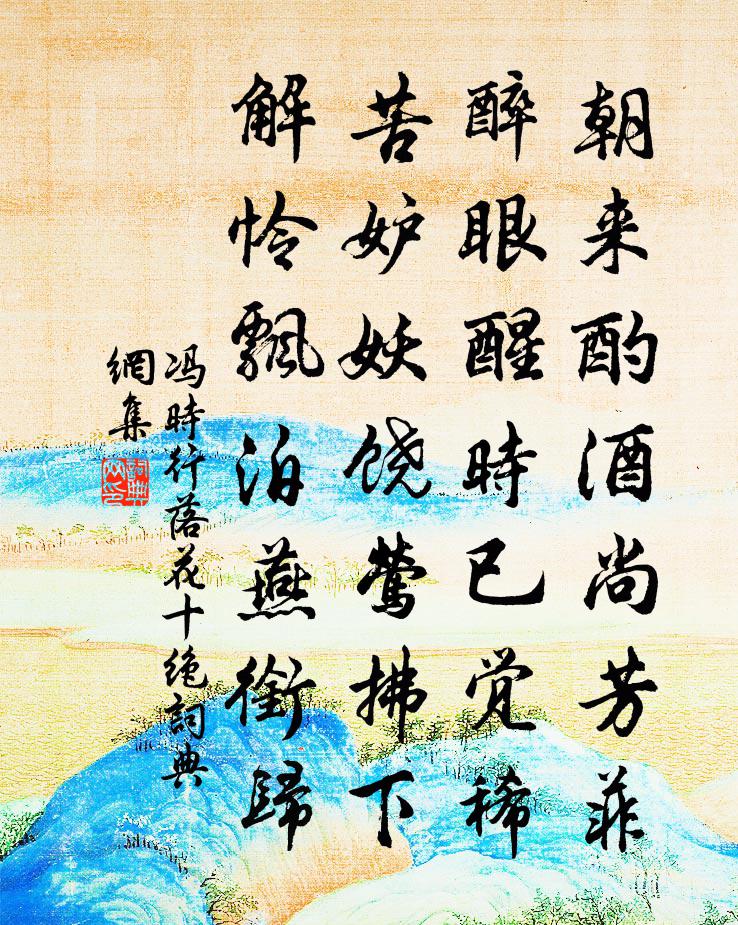 朝来酌酒尚芳菲
醉眼醒時已觉稀
苦妒妖饶莺拂下
解怜飘泊燕銜歸
冯時行落花十绝詞典
網集
詞典